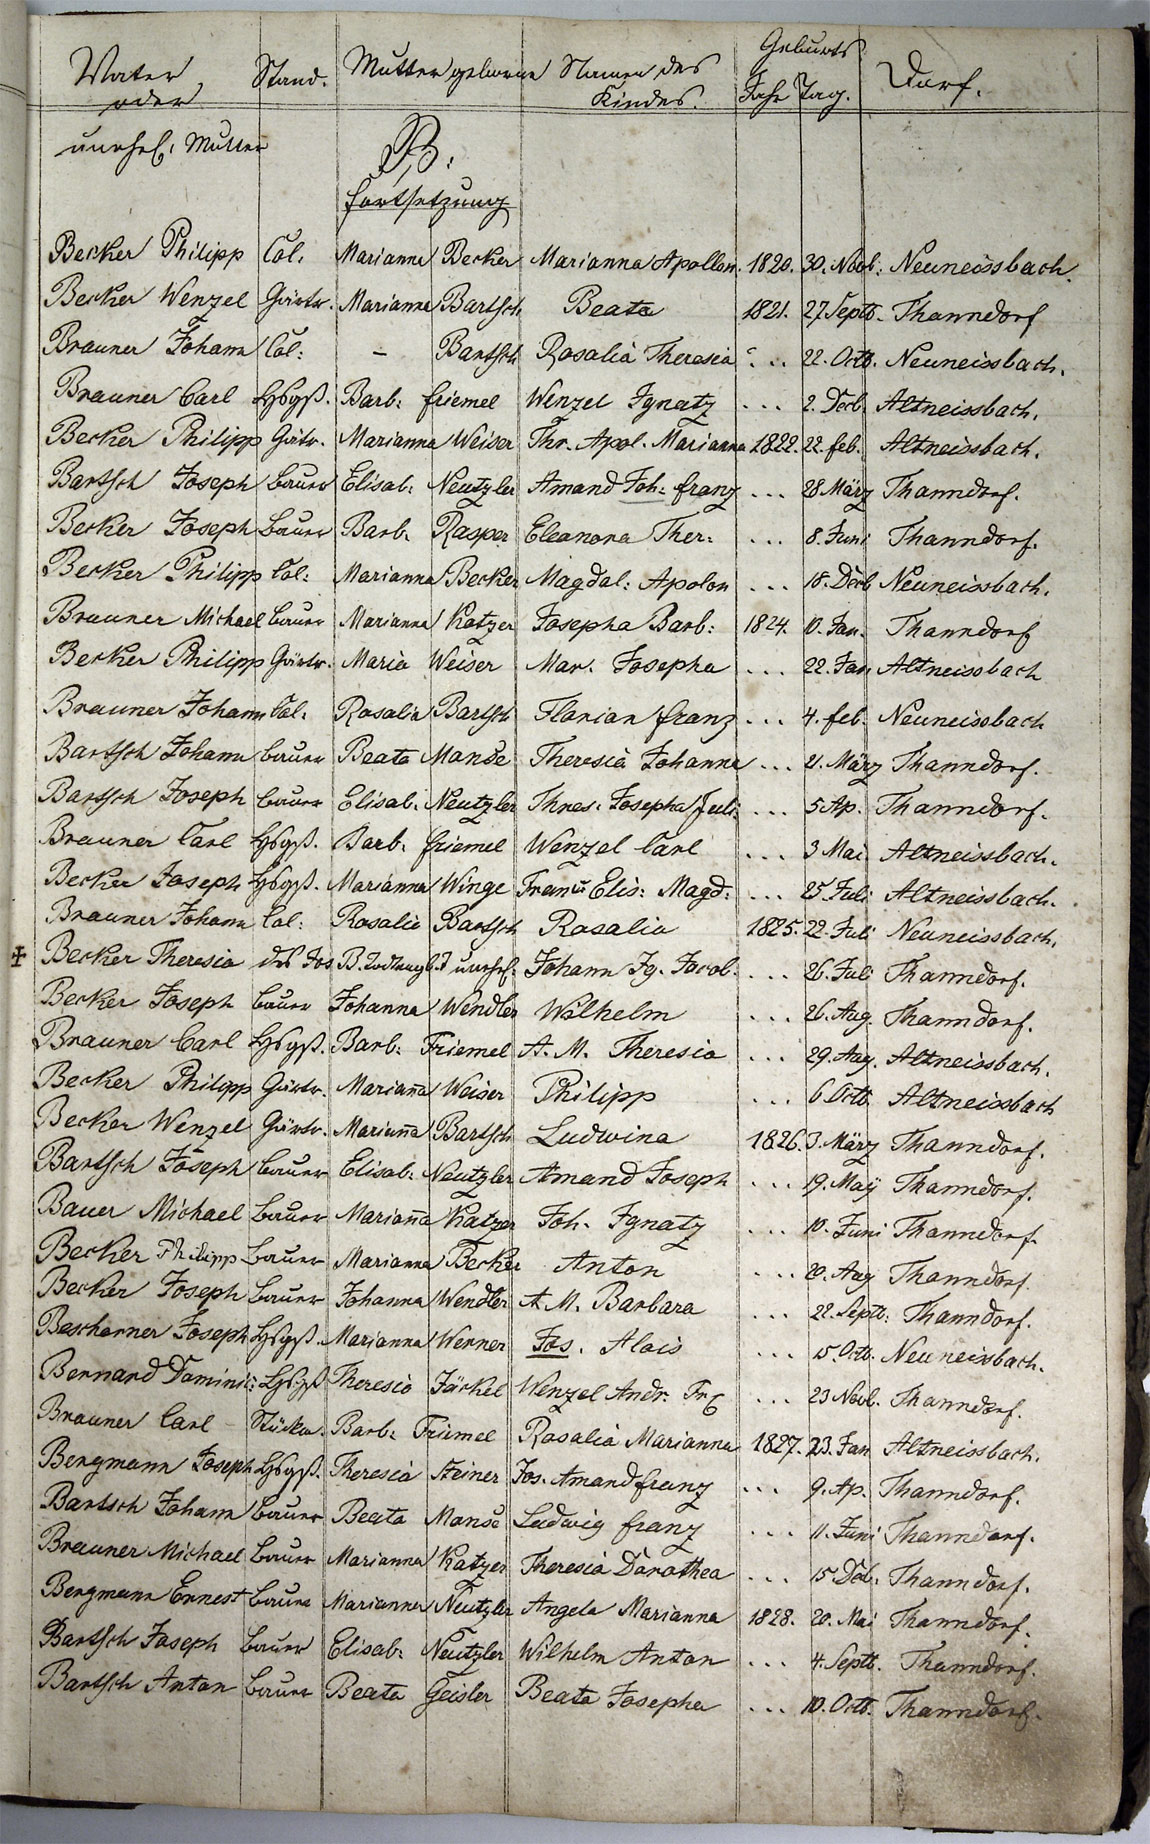 Vater Stand. Mutter geborne Namen des Geburts Dorf.
oder Kindes. Jahr Tag.
unehel: Mutter B:
Fortsetzung
Becker Philipp Col: Marianna Becker Marianna Apollon. 1820. 30. Novb: Neuneissbach.
Becker Wenzel Gärtr. Marianna Bartsch Beata 1821. 27 Septb. Thanndorf
Brauner Johann Col: – Bartsch Rosalia Theresia . . . 22. Octb. Neuneissbach.
Brauner Carl Hsgß. Barb: Friemel Wenzel Ignatz . . . 2. Decb. Altneissbach.
Becker Philipp Gärtr. Marianna Weiser Thr. Apol. Marianna 1822. 22. Feb. Altneissbach.
Bartsch Joseph Bauer Elisab: Neutzler Amand Joh: Franz . . . 28 März Thanndorf.
Becker Joseph Bauer Barb: Rasper Eleanora Ther: . . . 8. Juni Thanndorf.
Becker Philipp Col: Marianna Becker Magdal: Apolon . . . 18. Decb Neuneissbach.
Brauner Michael Bauer Marianna Katzer Josepha Barb: 1824. 10. Jan. Thanndorf
Becker Philipp Gärtr. Maria Weiser Mar. Josepha . . . 22. Jan Altneissbach
Brauner Johann Col: Rosalia Bartsch Florian Franz . . . 4. Feb. Neuneissbach
Bartsch Johann Bauer Beata Manse Theresia Johanna . . . 21. März Thanndorf.
Bartsch Joseph Bauer Elisab: Neutzler Thres: Josepha Juli: . . . 5 Ap. Thanndorf.
Brauner Carl Hsgß. Barb: Friemel Wenzel Carl . . . 3 Mai Altneissbach.
Becker Joseph Hsgß. Marianna Winge Elis: Magd: . . . 25 Juli Altneissbach.
Brauner Johann Col: Rosalie Bartsch Rosalia 1825. 22. Juli Neuneissbach.
Becker Theresia des Jos B. unehel. Johann Ig. Jacob. . . . 26. Juli Thanndorf.
Becker Joseph Bauer Johanna Wendler Wilhelm . . . 26. Aug. Thanndorf.
Brauner Carl Hsgß. Barb: Friemel A. M. Theresia . . . 29. Aug. Altneissbach.
Becker Philipp Gärtr. Marian̄a Weiser Philipp . . . 6 Octb. Altneissbach
Becker Wenzel Gärtr. Marian̄a Bartsch Ludwina 1826. 3. März Thanndorf.
Bartsch Joseph Bauer Elisab: Neutzler Amand Joseph . . . 19. Maÿ Thanndorf.
Bauer Michael Bauer Marian̄a Katzer Joh. Ignatz . . . 10. Juni Thanndorf.
Becker Philipp Bauer Marianna Becker Anton . . . 20. Aug Thanndorf.
Becker Joseph Bauer Johanna Wendler A. M. Barbara . . . 22. Septb: Thanndorf.
Bescherner Joseph Hsgß. Marianna Werner Jos. Alois . . . 15. Octb. Neuneissbach.
Bernard Dominic: Hsgß Theresia Jäckel Wenzel Andr. Frz . . . 23 Novb. Thanndorf.
Brauner Carl Barb: Friemel Rosalia Marianna 1827. 23. Jan Altneissbach.
Bergmann Joseph Hsgß. Theresia Steiner Jos. Amand Franz . . . 9. Ap. Thanndorf.
Bartsch Johann Bauer Beata Manse Ludwig Franz . . . 11. Juni Thanndorf.
Brauner Michael Bauer Marianna Katzer Theresia Dorothea . . . 15. Dcb. Thanndorf.
Bergmann Ernest Bauer Marianna Neutzler Angela Marianna 1828. 20. Mai Thanndorf.
Bartsch Joseph Bauer Elisab: Neutzler Wilhelm Anton . . . 4. Septb. Thanndorf.
Bartsch Anton Bauer Beata Geisler Beata Josepha . . . 10. Octb. Thanndorf.